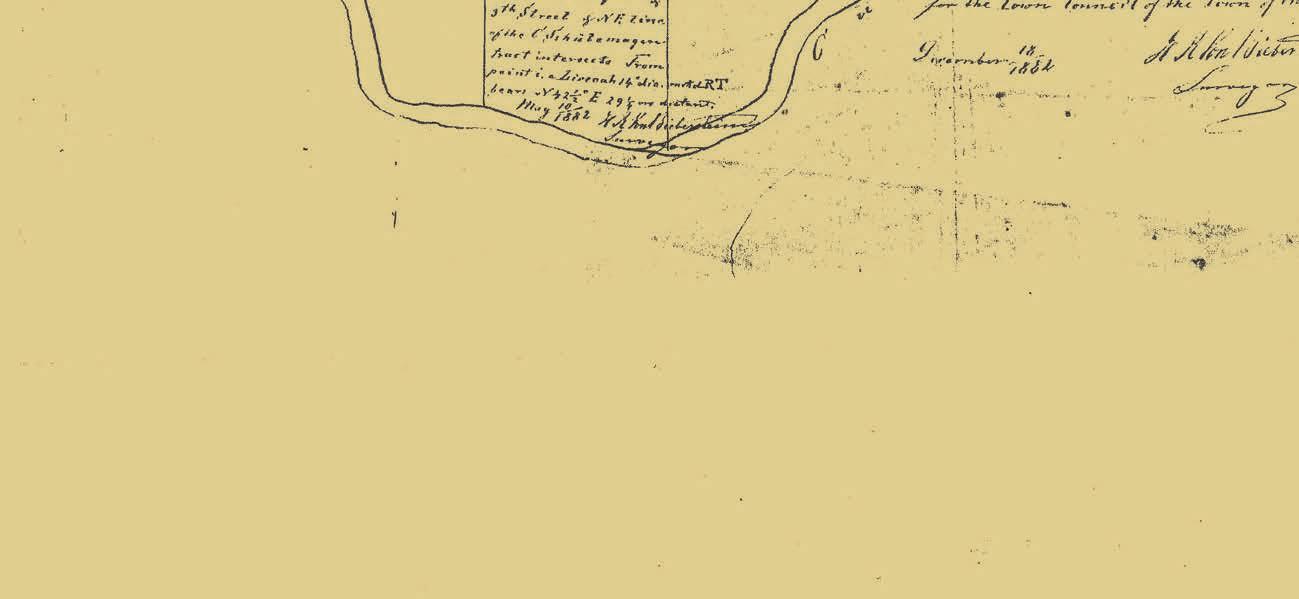 9th Street & N.E. Line
of the C. Schützmagen
tract intersects From
point i. a Live oak 14" dia. mrkd RT
bears N 42 ½° E 29 ½ vrs distant.
May 10 1882 H R Von Bieberstein
Surveyor
for the Town Council of the Town of
December 18 1882
H R Von Bieber
Surveyor
C